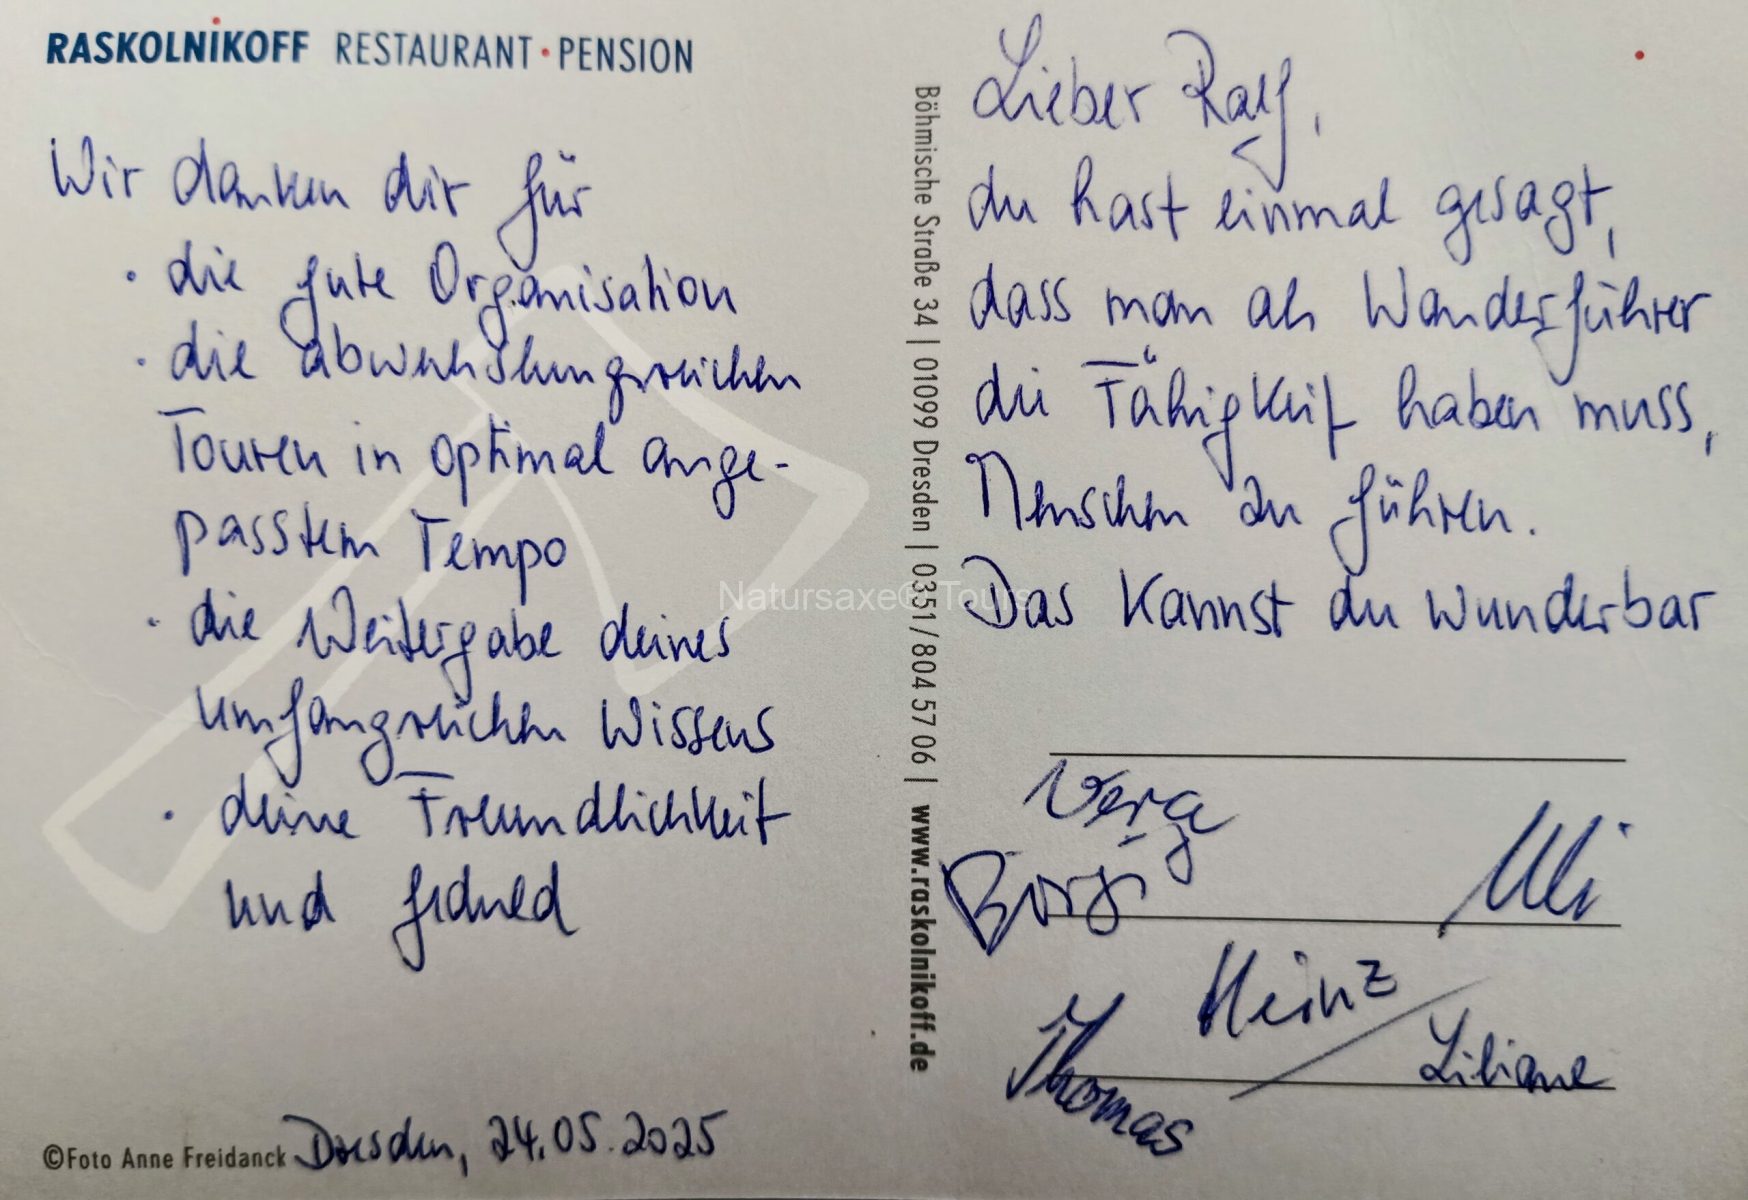 RASKOLNIKOFF RESTAURANT · PENSION
Wir danken dir für
· die gute Organisation
· die abwechslungsreichen
Touren in optimal ange-
passtem Tempo
· die Weitergabe deines
umfangreichen Wissens
· deine Freundlichkeit
und Geduld
©Foto Anne Freidanck
Dresden, 24.05.2025
Böhmische Straße 34 | 01099 Dresden | 0351/804 57 06 | www.raskolnikoff.de
Natursaxe® Tours
Lieber Ralf,
du hast einmal gesagt,
dass man als Wanderführer
die Fähigkeit haben muss,
Menschen zu führen.
Das kannst du wunderbar
Vera
Uli
Heinz
Thomas
Liliane